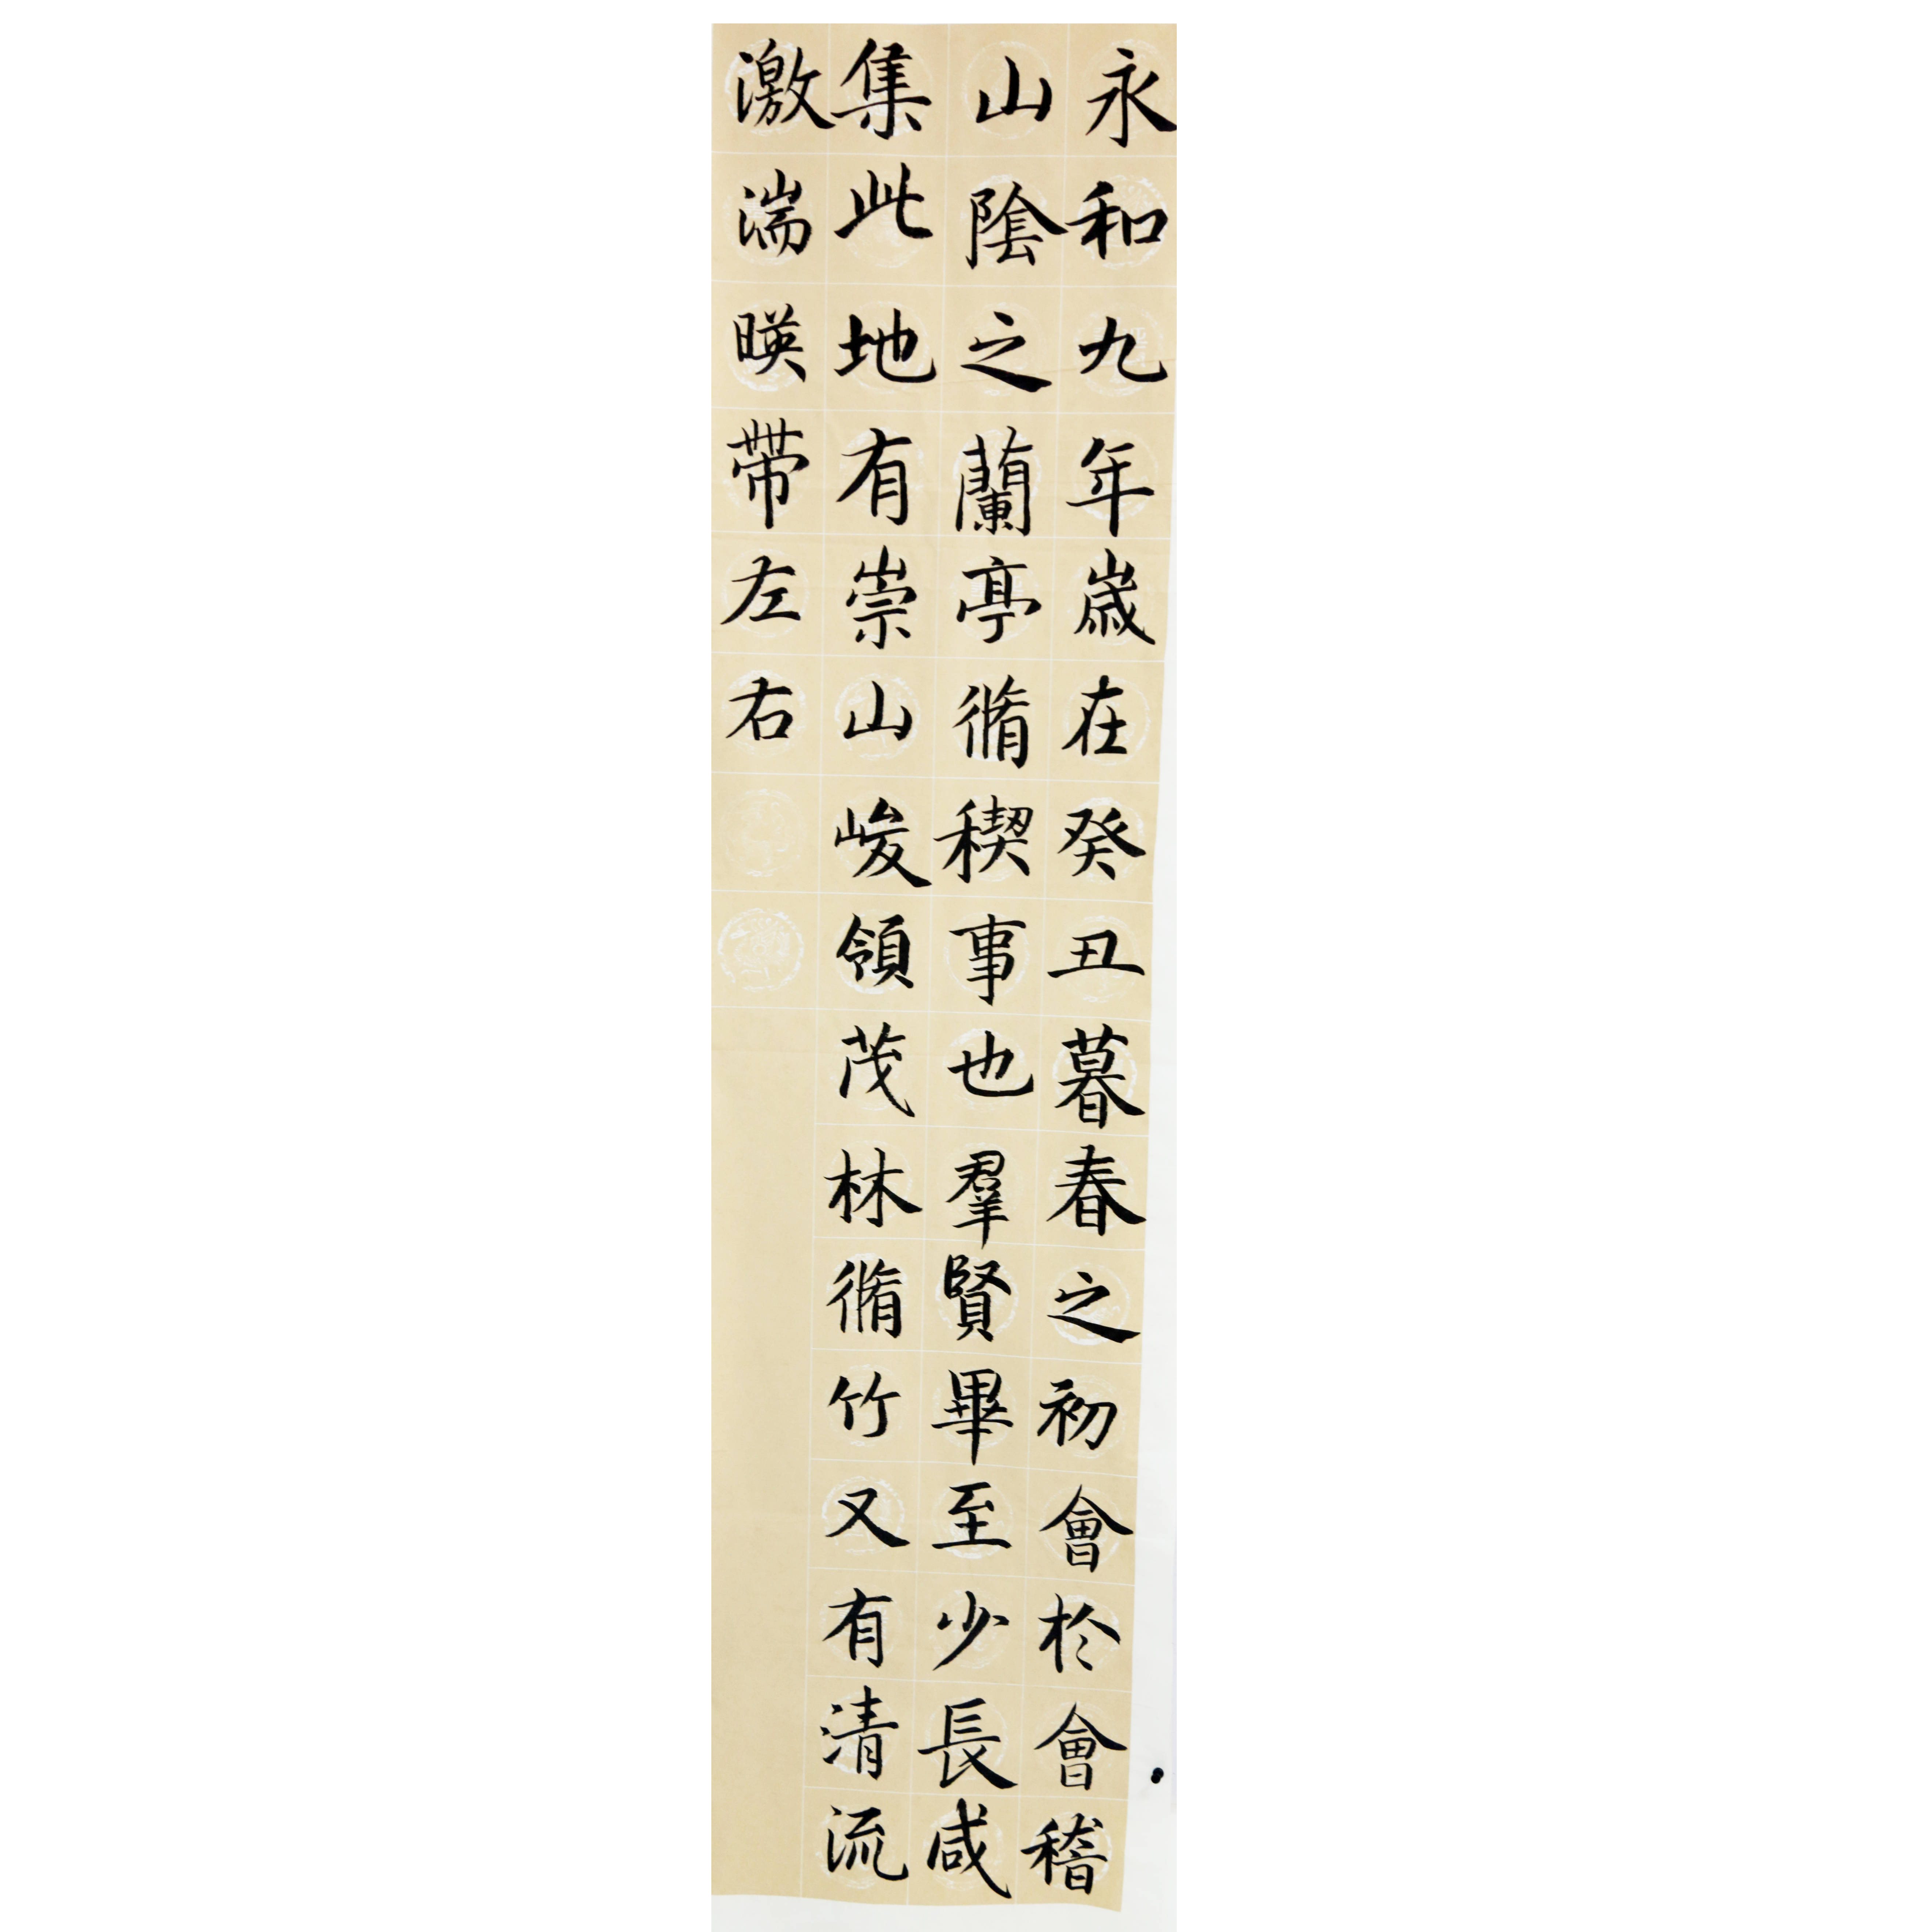 永和九年歳在癸丑暮春之初會於會稽
山陰之蘭亭脩稧事也羣賢畢至少長咸
集此地有崇山峻領茂林脩竹又有清流
激湍暎帶左右